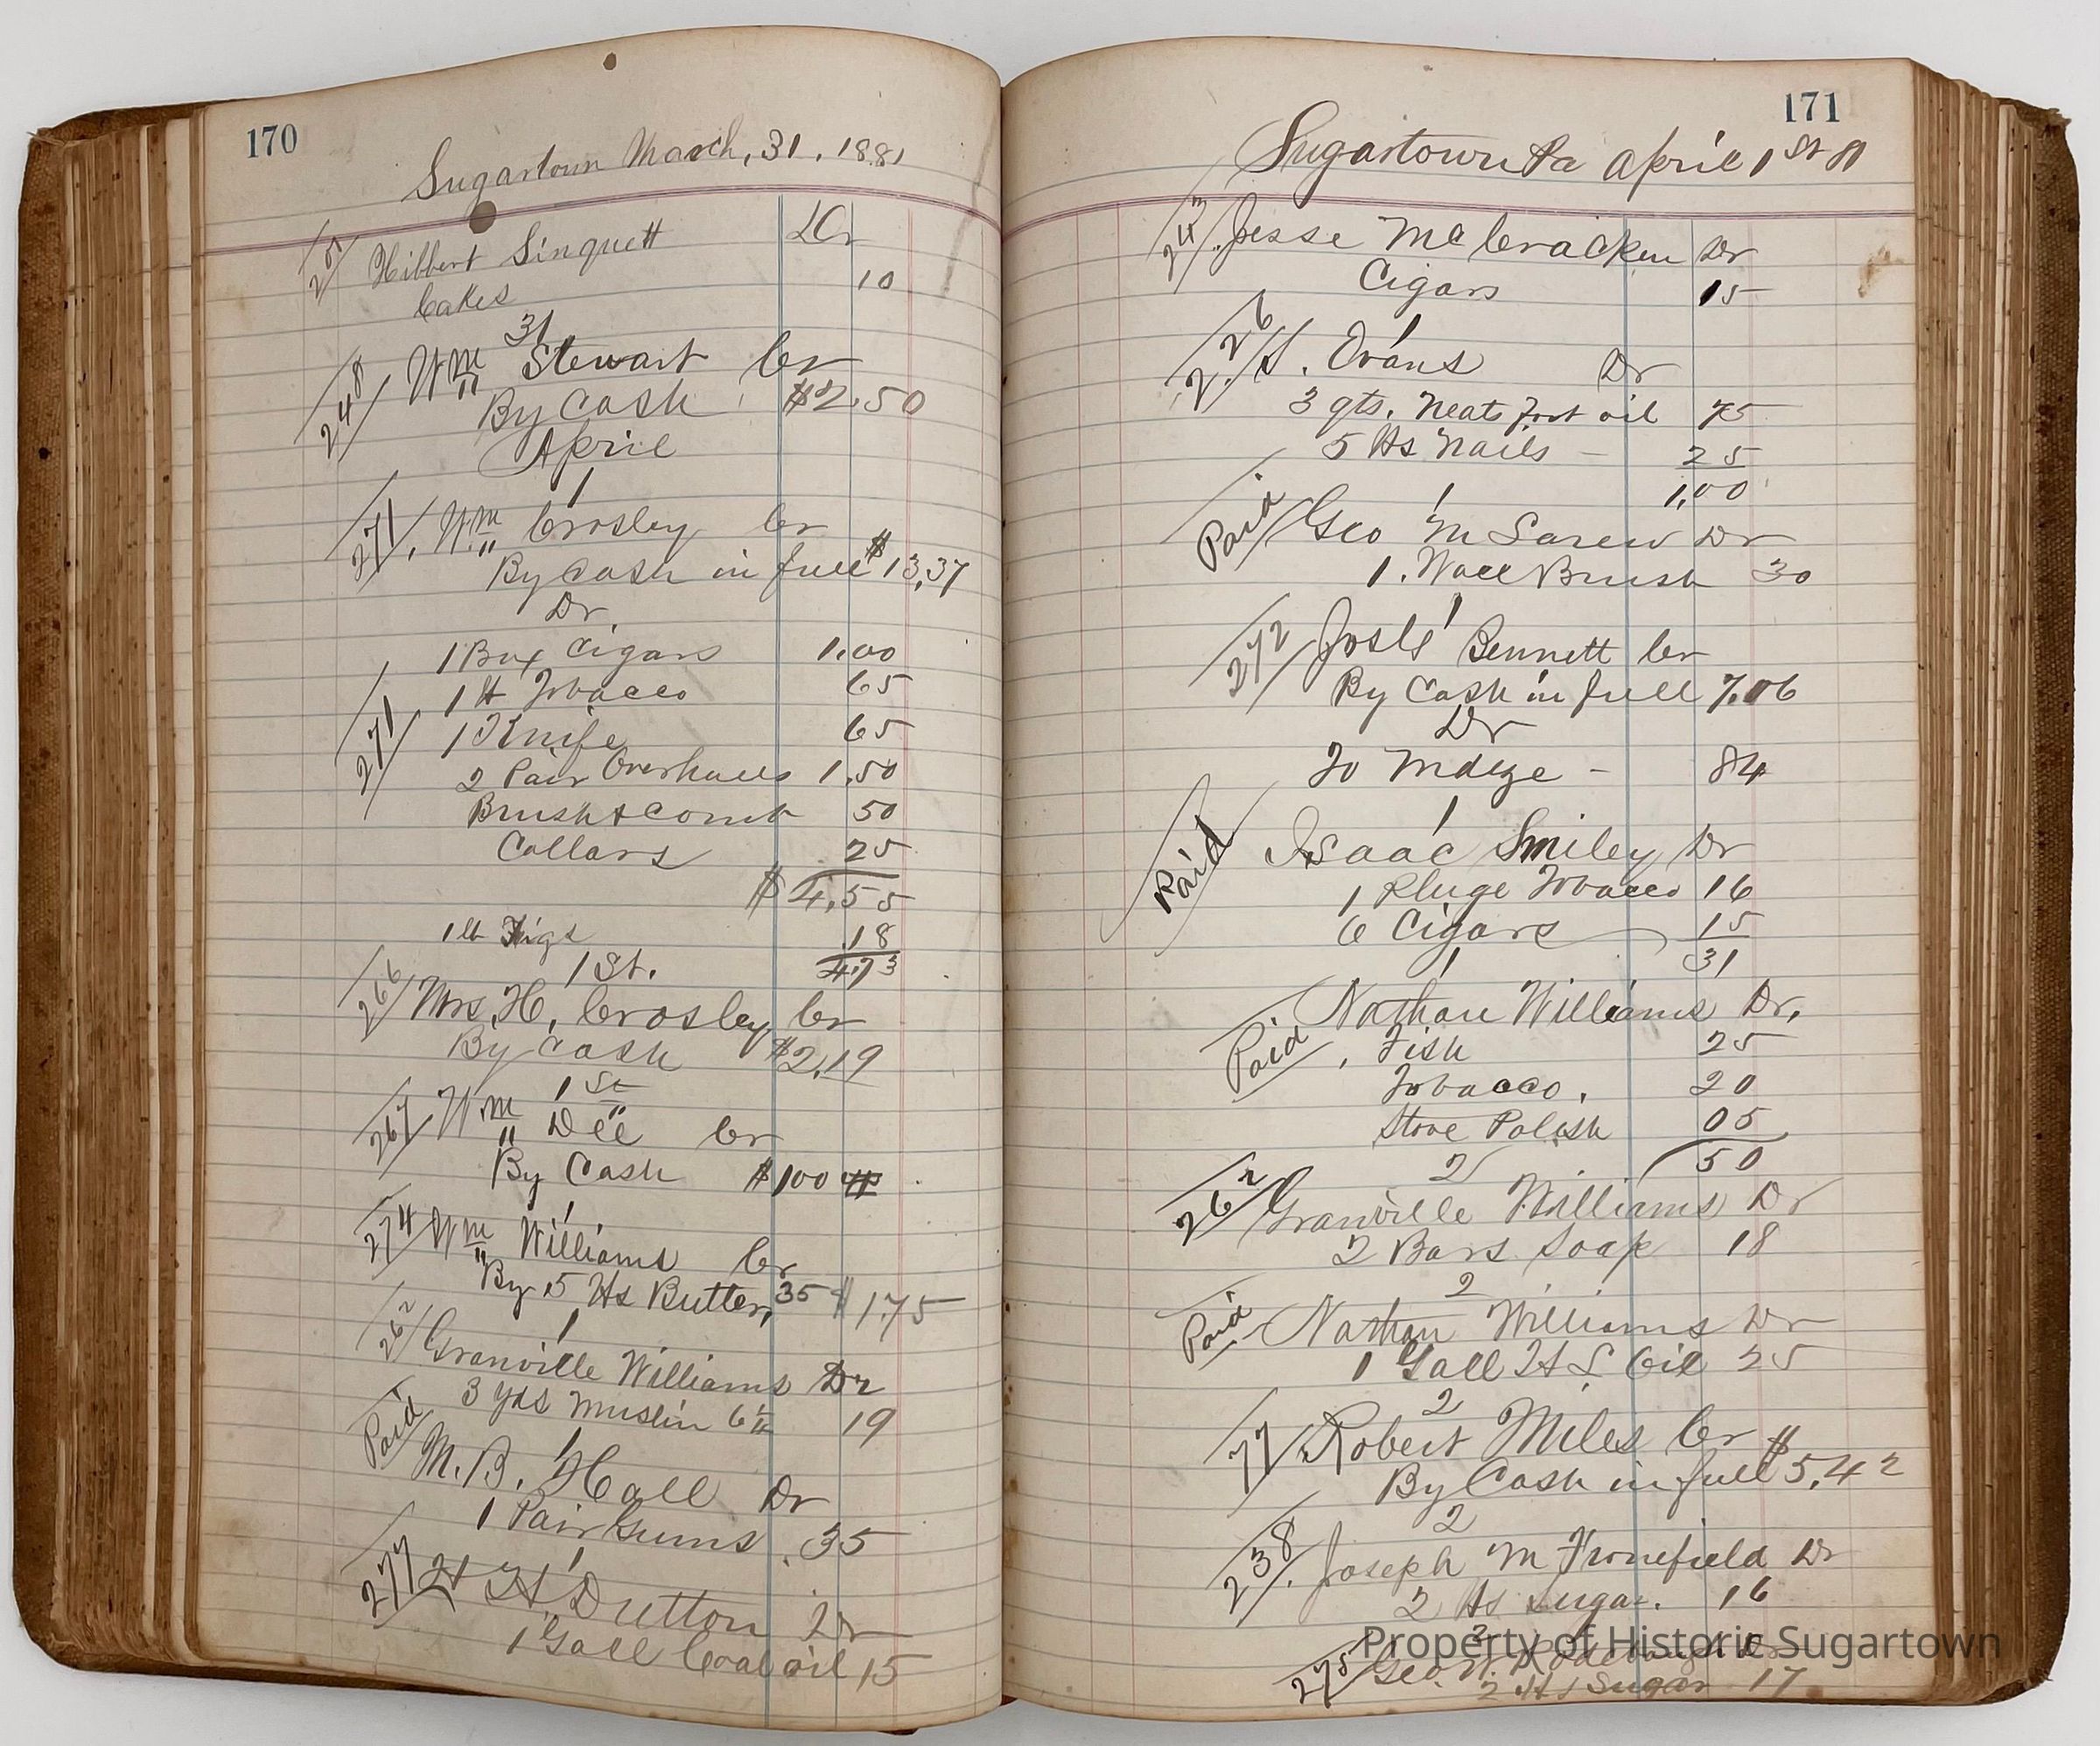 170
Sugartown March, 31, 1881
251 Hibbert Sinquett Dr
Cakes 10
31
248 Wm Stewart Cr
By Cash $2.50
April
1
271 Wm Crosley Cr
By Cash in full $13,37
Dr
1 Box Cigars 1.00
1 lb Tobacco 65
271 1 Knife 65
2 Pair Overhauls 1.50
Brush & Comb 50
Collars 25
$4,55
1 lb Figs .18
4.73
1 St.
266 Mrs, H, Crosley Cr
By Cash $2,19
1 St
267 Wm Dell Cr
By Cash $100
1
274 Wm Williams Cr
By 5 lbs Butter, 35 $1.75
1
262 Granville Williams Dr
3 yds Muslin 6½ 19
1
Paid M. B. Hall Dr
1 Pair Gums .35
1
277 H H Dutton Dr
1 Gall Coal oil 15
171
Sugartown Pa April 1 St 81
243 Jesse McCracken Dr
Cigars 15
1
226 Evans Dr
3 qts. Neats Foot oil 75
5 lbs Nails - 25
1,00
1
Paid Geo M Dr
1. Wall Brush 30
1
272 Bennett Cr
By Cash in full 7.06
Dr
To Mdze - 84
1
Paid Isaac Smiley Dr
1 Pluge Tobacco 16
6 Cigars 15
31
1
Paid Nathan Williams Dr.
Fish 25
Tobacco. 20
Stove Polish 05
50
2
262 Granville Williams Dr
2 Bars Soap 18
2
Paid Nathan Williams Dr
1 Gall H L Oil 25
2
77 Robert Miles Cr
By Cash in full $5.42
2
238 Joseph M Fronefield Dr
2 lbs Sugar. 16
2
275 Geo. Dr
2 lbs Sugar 17
Property of Historic Sugartown